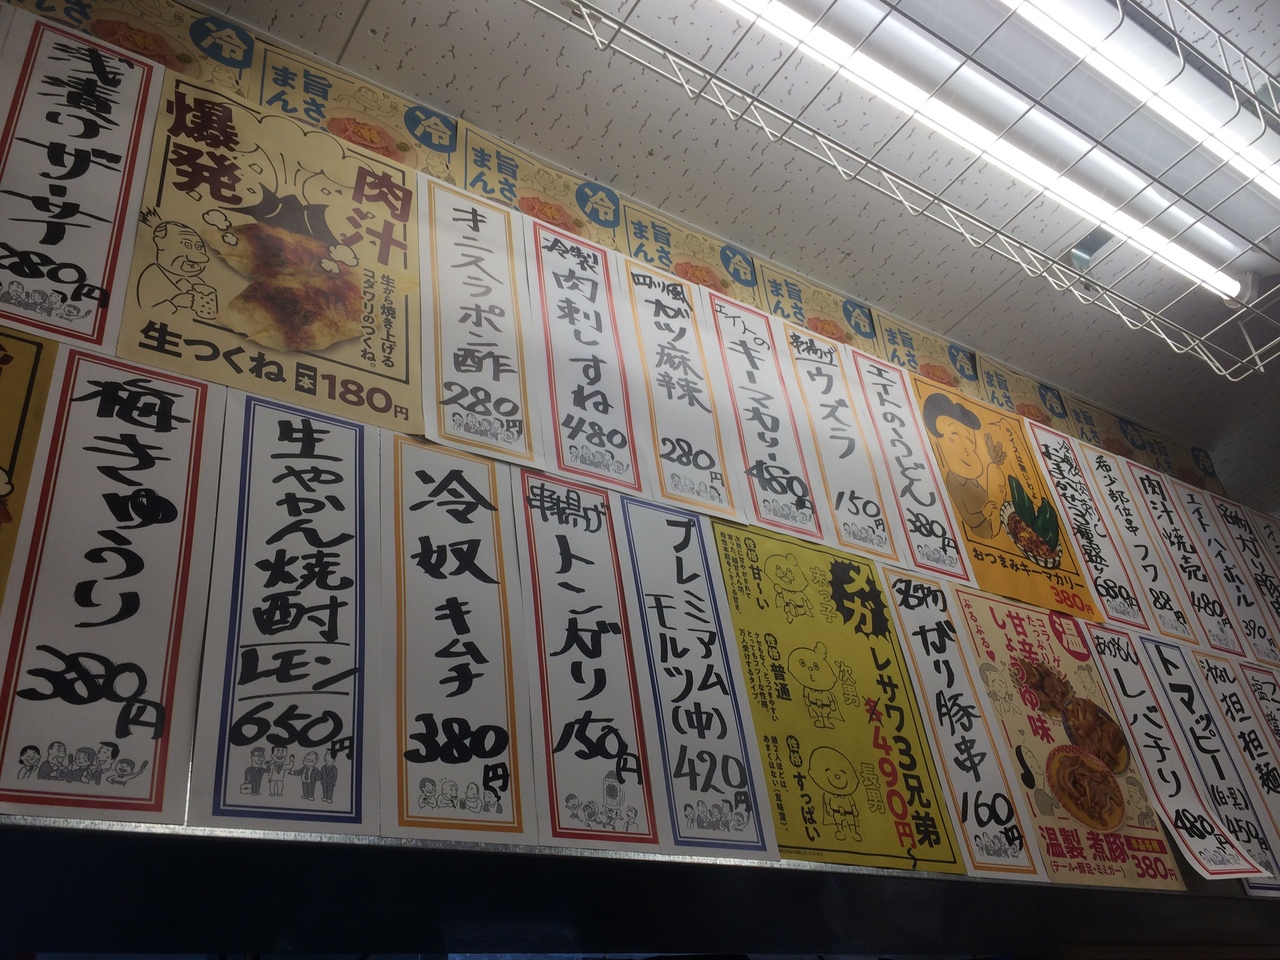 冷
旨さ
まん
冷
旨さ
まん
冷
旨さ
まん
冷
旨さ
まん
冷
旨さ
まん
冷
浅漬けザーサイ
280円
爆発
肉汁
生から焼き上げる
コダワリのつくね。
生つくね 一本 180円
オニスラポン酢
280円
冷製
肉刺しすね
480円
四川風
ガツ麻辣
280円
エイトの
キーマカリー
480円
串揚げ
ウズラ
150円
エイトのうどん
380円
おつまみキーマカリー
380円
680円
希少部位串
フワ
88円
肉汁焼売
480円
エイトハイボール
390円
梅きゅうり
380円
生やかん焼酎
レモン
650円
冷奴キムチ
380円
串揚げ
トンガリ
150円
プレミアム
モルツ(中)
420円
メガレサワ3兄弟
各490円
末っ子
性格 甘〜い
次男
性格 普通
長男
性格 すっぱい
名物
がり豚串
160円
温
コラーゲン
たっぷり
甘辛
しょうゆ味
ぷるぷる
温製 煮豚
(テール・豚足・ミミガー)
380円
レバチリ
480円
トマッピー
(白・黒)
450円
汁なし
担担麺